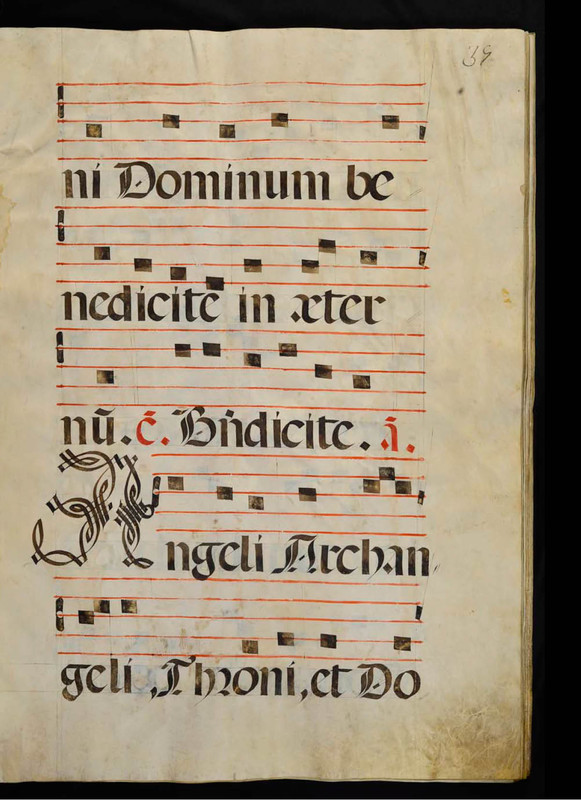 39
ni Dominum be
nedicite in æter
nū. c̄. Bn̄dicite. ā.
Angeli Archan,
geli, Throni, et Do